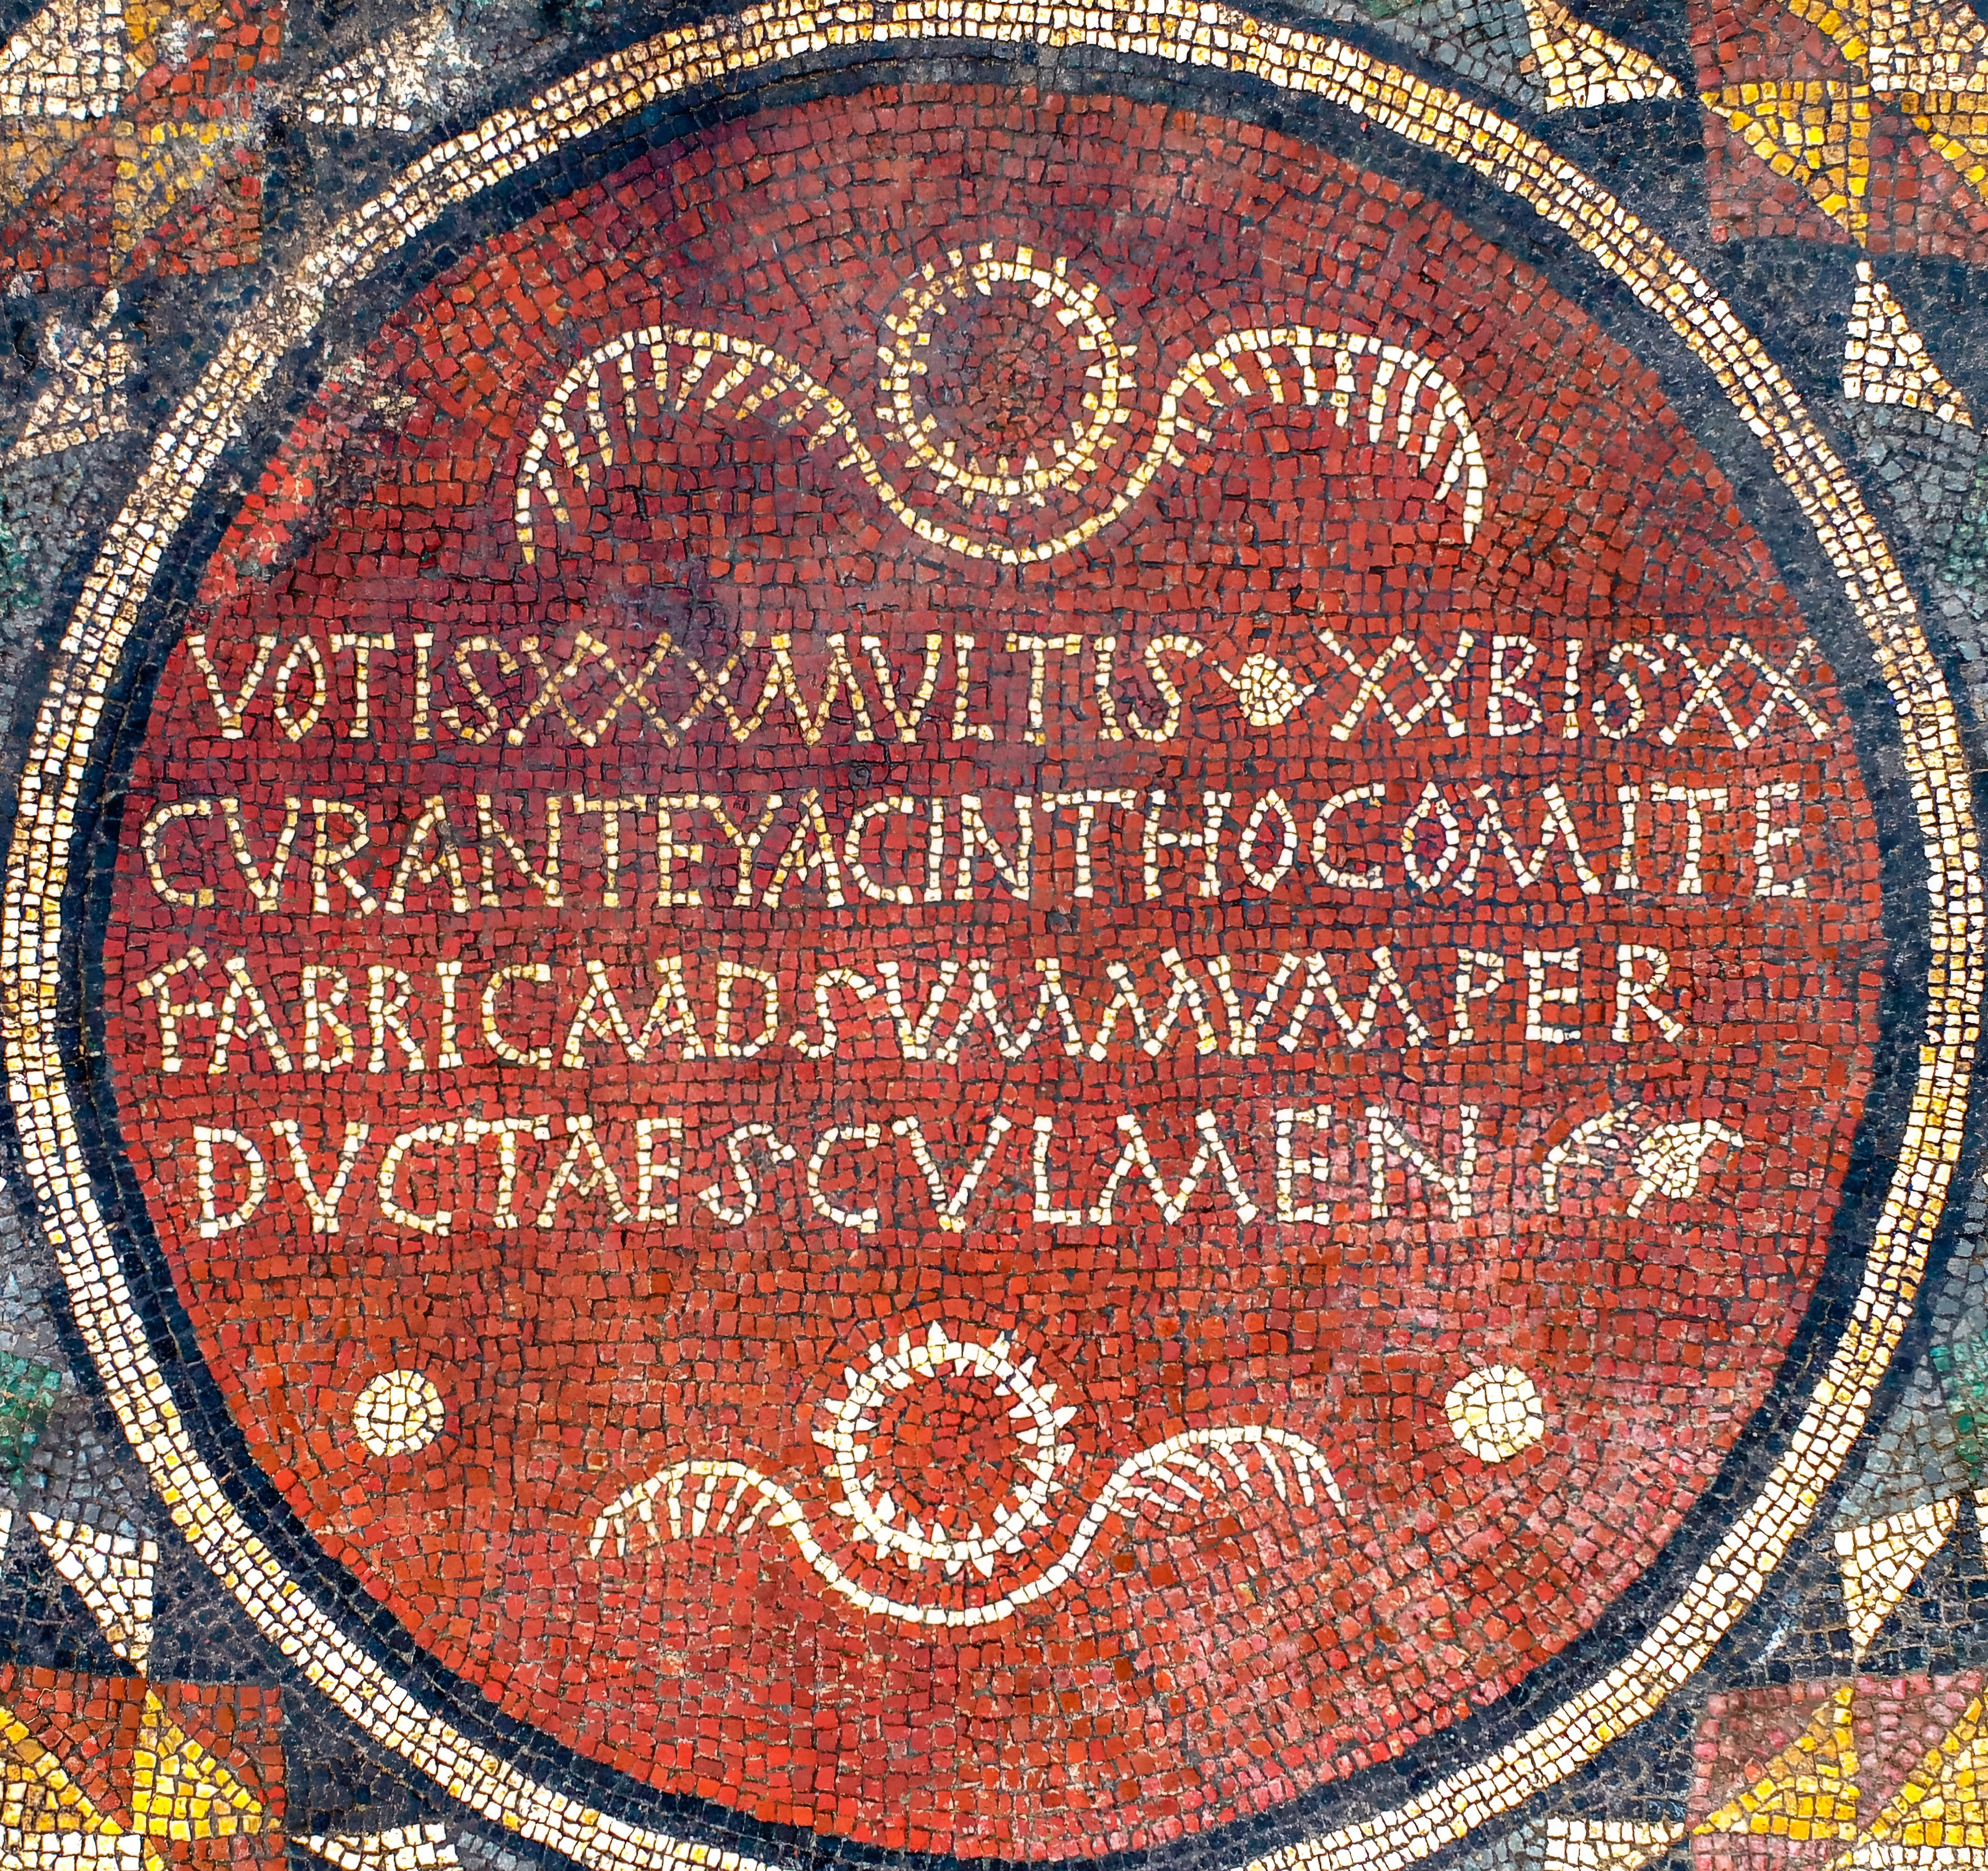 VOTISXXXMVLTIS XXBISXX
CVRANTEYACINTHOCOMITE
FABRICAADSVMMVMPER
DVCTAESCVLMEN